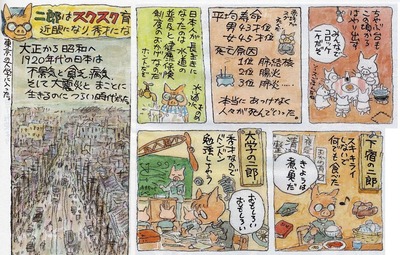 二郎はスクスク育
近眼になり秀才になり
東京の大学に入った。
大正から昭和へ
1920年代の日本は
不景気と貧乏、病気
そして大震災と まことに
生きるのにつらい時代だった。
日本人が長生きに
なったのは水道の
普及と健康保険
制度のおかげなのだ
平均寿命
男 43才位
女
死亡原因
1位 肺結核
2位 腸炎
3位 肺炎
本当にあっけなく
人々が死んでいった。
みんなで
コロッケ
大学の二郎
秀才なので
ドンドン
勉強する
おもしろい
おもしろい
下宿の二郎
スキキライ
ないので
何でも食べた
きょうは
煮魚だ